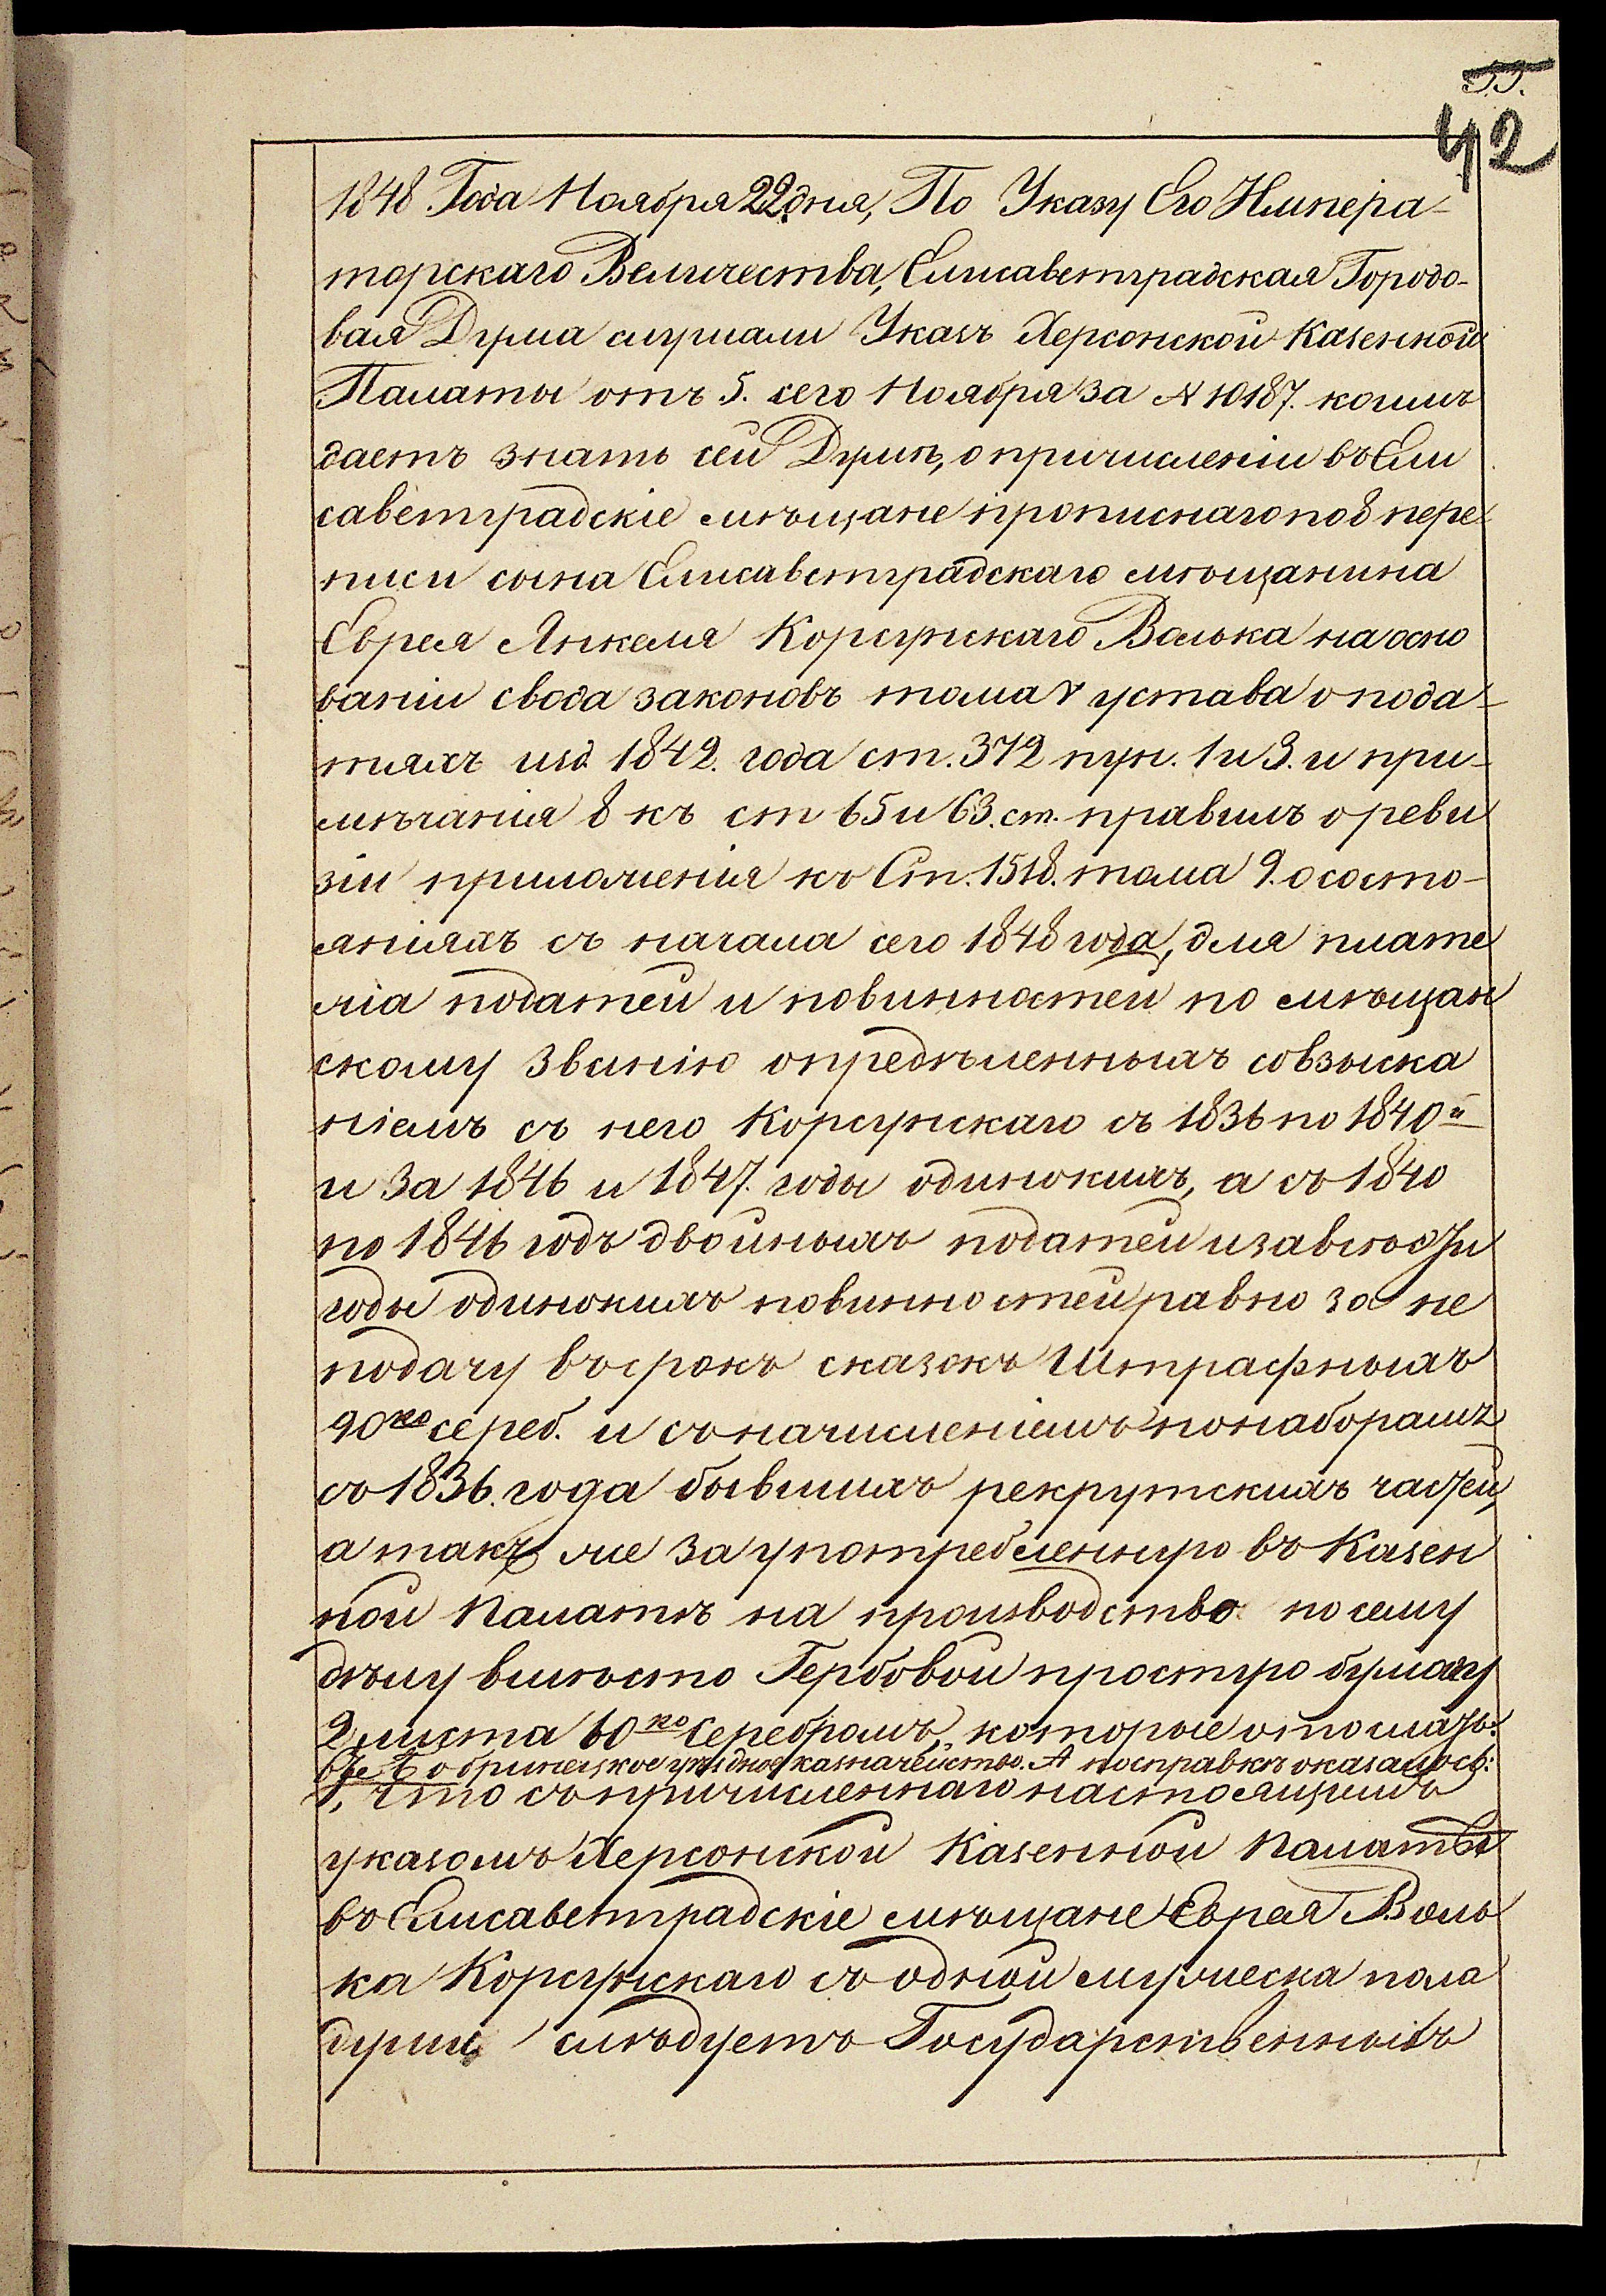 42
1848 Года Ноября 22 дня, По Указу Его Импера-
торскаго Величества, Елисаветградская Городо-
вая Дума слушали Указъ Херсонской Казенной
Палаты отъ 5. сего Ноября за № 10187. коимъ
даетъ знать сей Думѣ, о причисленіи въ Ели
саветградскіе мѣщане прописнаго по 8 пере
писи сына Елисаветградскаго мѣщанина
Еврея Янкеля Корсунскаго Волька на осно
ваніи свода законовъ тома V устава о пода-
тяхъ изд. 1842. года ст. 372 пун. 1 и 3. и при-
мѣчанія 8 къ ст 65 и 63. ст. правилъ о реви
зіи приложенія къ Ст. 1518. тома 9. о состо-
яніяхъ съ начала сего 1848 года, для плате
жа податей и повинностей по мѣщан
скому званію опредѣленныхъ со взыска
ніемъ съ него Корсунскаго съ 1836 по 1840й
и за 1846 и 1847. годы одинокихъ, а съ 1840
по 1846 годъ двойныхъ податей и за все эти
годы одинокихъ повинностей равно за не
подачу въ срокъ сказокъ Штрафныхъ
90 ко сереб. и съ начисленіемъ по наборамъ
съ 1836. года бывшихъ рекрутскихъ частей,
а такъ же за употребленную въ Казен
ной Палатѣ на производство по сему
дѣлу вмѣсто Гербовой простую бумагу
2 листа 60 ко Серебромъ, которые отослать:
въ Бобринецкое уѣздное казначейство. А по справкѣ оказалось:
1, Что съ причисленнаго настоящимъ
указомъ Херсонской Казенной Палаты
въ Елисаветградскіе мѣщане Еврея Воль
ка Корсунскаго съ одной мужеска пола
души слѣдуетъ Государственныхъ